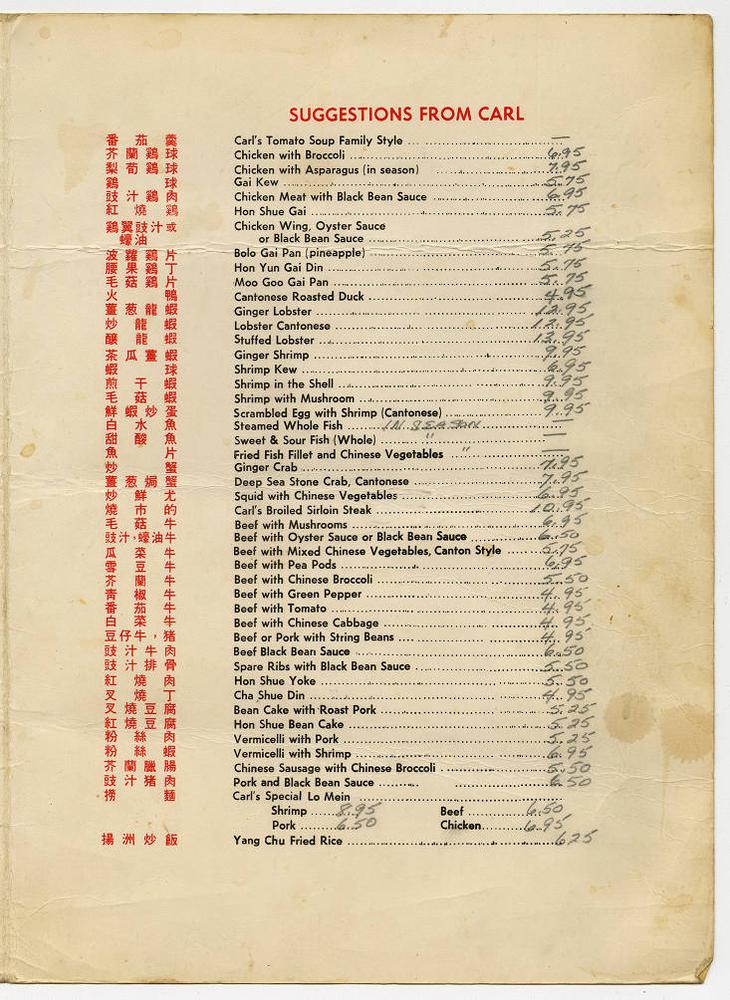 SUGGESTIONS FROM CARL
番茄羹 Carl's Tomato Soup Family Style —
芥蘭鷄球 Chicken with Broccoli 6.95
梨荀鷄球 Chicken with Asparagus (in season) 7.95
鷄球 Gai Kew 5.75
豉汁鷄肉 Chicken Meat with Black Bean Sauce 6.95
紅燒鷄 Hon Shue Gai 5.75
鷄翼豉汁或 Chicken Wing, Oyster Sauce
蠔油 or Black Bean Sauce 5.25
波蘿鷄片 Bolo Gai Pan (pineapple) 5.75
腰果鷄丁 Hon Yun Gai Din 5.75
毛菇鷄片 Moo Goo Gai Pan 5.75
火鴨 Cantonese Roasted Duck 4.95
薑葱龍蝦 Ginger Lobster 12.95
炒龍蝦 Lobster Cantonese 12.95
釀龍蝦 Stuffed Lobster 13.95
茶瓜薑蝦 Ginger Shrimp 9.95
蝦球 Shrimp Kew 6.95
煎干蝦 Shrimp in the Shell 9.95
毛菇蝦 Shrimp with Mushroom 9.95
鮮蝦炒蛋 Scrambled Egg with Shrimp (Cantonese) 9.95
白水魚 Steamed Whole Fish IN SEASON —
甜酸魚 Sweet & Sour Fish (Whole) " —
魚片 Fried Fish Fillet and Chinese Vegetables " —
炒蟹 Ginger Crab 7.95
薑葱焗蟹 Deep Sea Stone Crab, Cantonese 7.95
炒鮮尤 Squid with Chinese Vegetables 6.95
燒市的 Carl's Broiled Sirloin Steak 10.95
毛菇牛 Beef with Mushrooms 6.95
豉汁，蠔油牛 Beef with Oyster Sauce or Black Bean Sauce 6.50
瓜菜牛 Beef with Mixed Chinese Vegetables, Canton Style 5.75
雪豆牛 Beef with Pea Pods 6.95
芥蘭牛 Beef with Chinese Broccoli 5.50
青椒牛 Beef with Green Pepper 4.95
番茄牛 Beef with Tomato 4.95
白菜牛 Beef with Chinese Cabbage 4.95
豆仔牛，猪 Beef or Pork with String Beans 4.95
豉汁牛肉 Beef Black Bean Sauce 6.50
豉汁排骨 Spare Ribs with Black Bean Sauce 5.50
紅燒肉 Hon Shue Yoke 5.50
叉燒丁 Cha Shue Din 4.95
叉燒豆腐 Bean Cake with Roast Pork 5.25
紅燒豆腐 Hon Shue Bean Cake 5.25
粉絲肉 Vermicelli with Pork 5.25
粉絲蝦 Vermicelli with Shrimp 6.95
芥蘭臘腸 Chinese Sausage with Chinese Broccoli 5.50
豉汁猪肉 Pork and Black Bean Sauce 6.50
撈麵 Carl's Special Lo Mein
Shrimp 8.95 Beef 6.50
Pork 6.50 Chicken 6.95
揚洲炒飯 Yang Chu Fried Rice 6.25